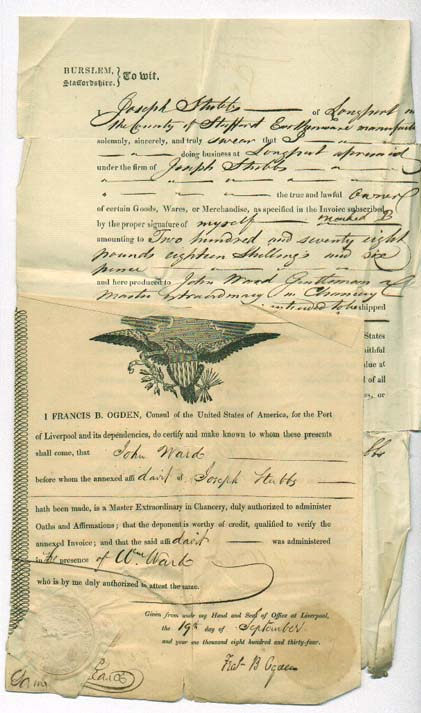 BURSLEM,
Staffordshire. } To wit.
I Joseph Stubbs of Longport in
the County of Stafford Earthenware manufactu
solemnly, sincerely, and truly swear that I
doing business at Longport aforesaid
under the firm of Joseph Stubbs
the true and lawful Owner
of certain Goods, Wares, or Merchandise, as specified in the Invoice subscribed
by the proper signature of myself marked B
amounting to Two hundred and seventy eight
pounds eighteen Shillings and six
pence
and here produced to John Ward Gentleman a
Master Extraordinary in Chancery
intended to be shipped
States
aithful
alue at
d of all
es, or
bbs
I FRANCIS B. OGDEN, Consul of the United States of America, for the Port
of Liverpool and its dependencies, do certify and make known to whom these presents
shall come, that John Ward
before whom the annexed affi davit of Joseph Stubbs
hath been made, is a Master Extraordinary in Chancery, duly authorized to administer
Oaths and Affirmations; that the deponent is worthy of credit, qualified to verify the
annexed Invoice; and that the said affi davit was administered
in the presence of Wm. Ward
who is by me duly authorized to attest the same.
Given from under my Hand and Seal of Office at Liverpool,
the 19th day of September
and year one thousand eight hundred and thirty-four.
Fra. B. Ogden